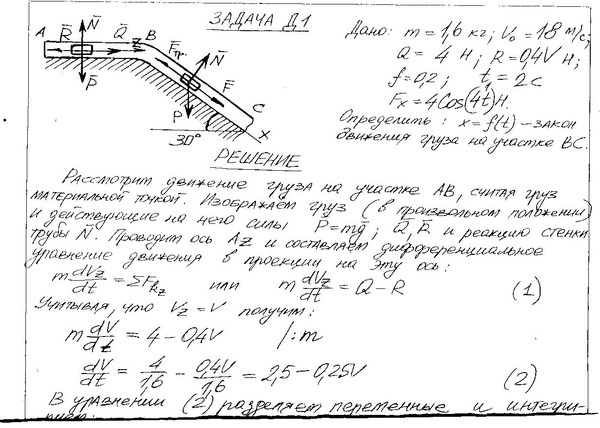 ЗАДАЧА Д.1
Дано: m = 1,6 кг; V₀ = 18 м/с;
Q = 4 Н; R = 0,4V Н;
f = 0,2; t₁ = 2с
Fx = 4Cos(4t)Н.
Определить: x = f(t) – закон
движения груза на участке BC.
A R̄ N̄ Q̄ z B
P̄
F̄тр. N̄ F̄ C
P̄
30° x
РЕШЕНИЕ
Рассмотрим движение груза на участке AB, считая груз
материальной точкой. Изображаем груз (в произвольном положении)
и действующие на него силы P̄=mḡ; Q̄, R̄ и реакцию стенки
трубы N̄. Проводим ось Az и составляем дифференциальное
уравнение движения в проекции на эту ось:
m dVz/dt = ΣFkz или m dVz/dt = Q – R (1)
Учитывая, что Vz = V получим:
m dV/dt = 4 – 0,4V /:m
dV/dt = 4/1,6 – 0,4V/1,6 = 2,5 – 0,25V (2)
В уравнении (2) разделяем переменные и интегри-